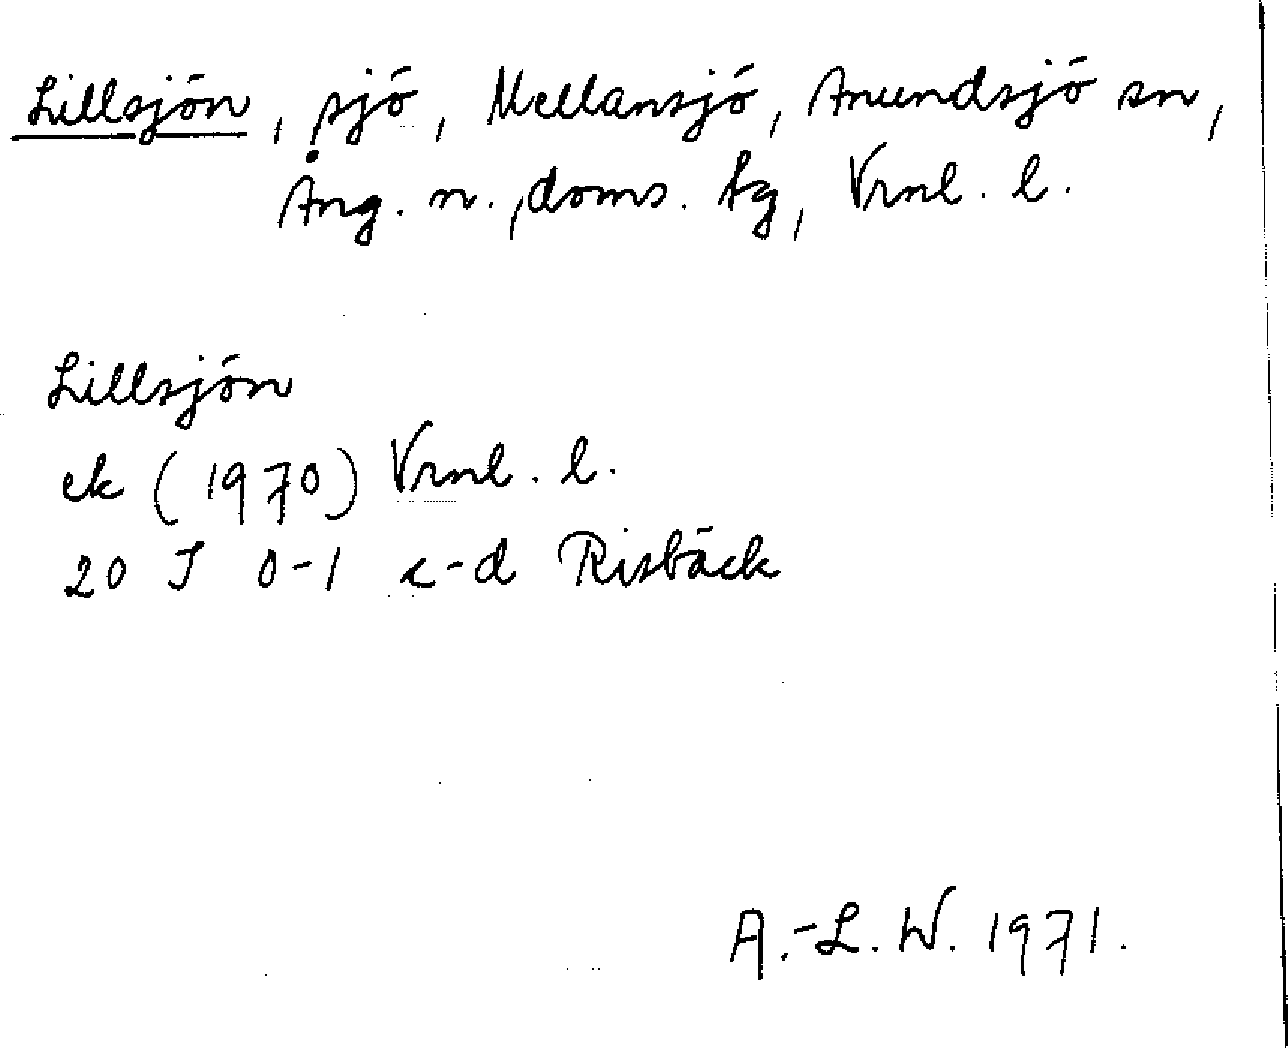 Lillsjön, sjö, Mellansjö, Anundsjö sn,
Ång. n., doms. tg, Vrnl. l.
Lillsjön
ek (1970) Vrnl. l.
20 J 0-1 c-d Risbäck
A.-L. W. 1971.